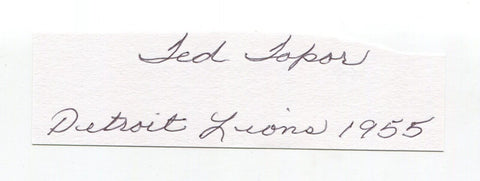 Ted Topor
Detroit Lions 1955